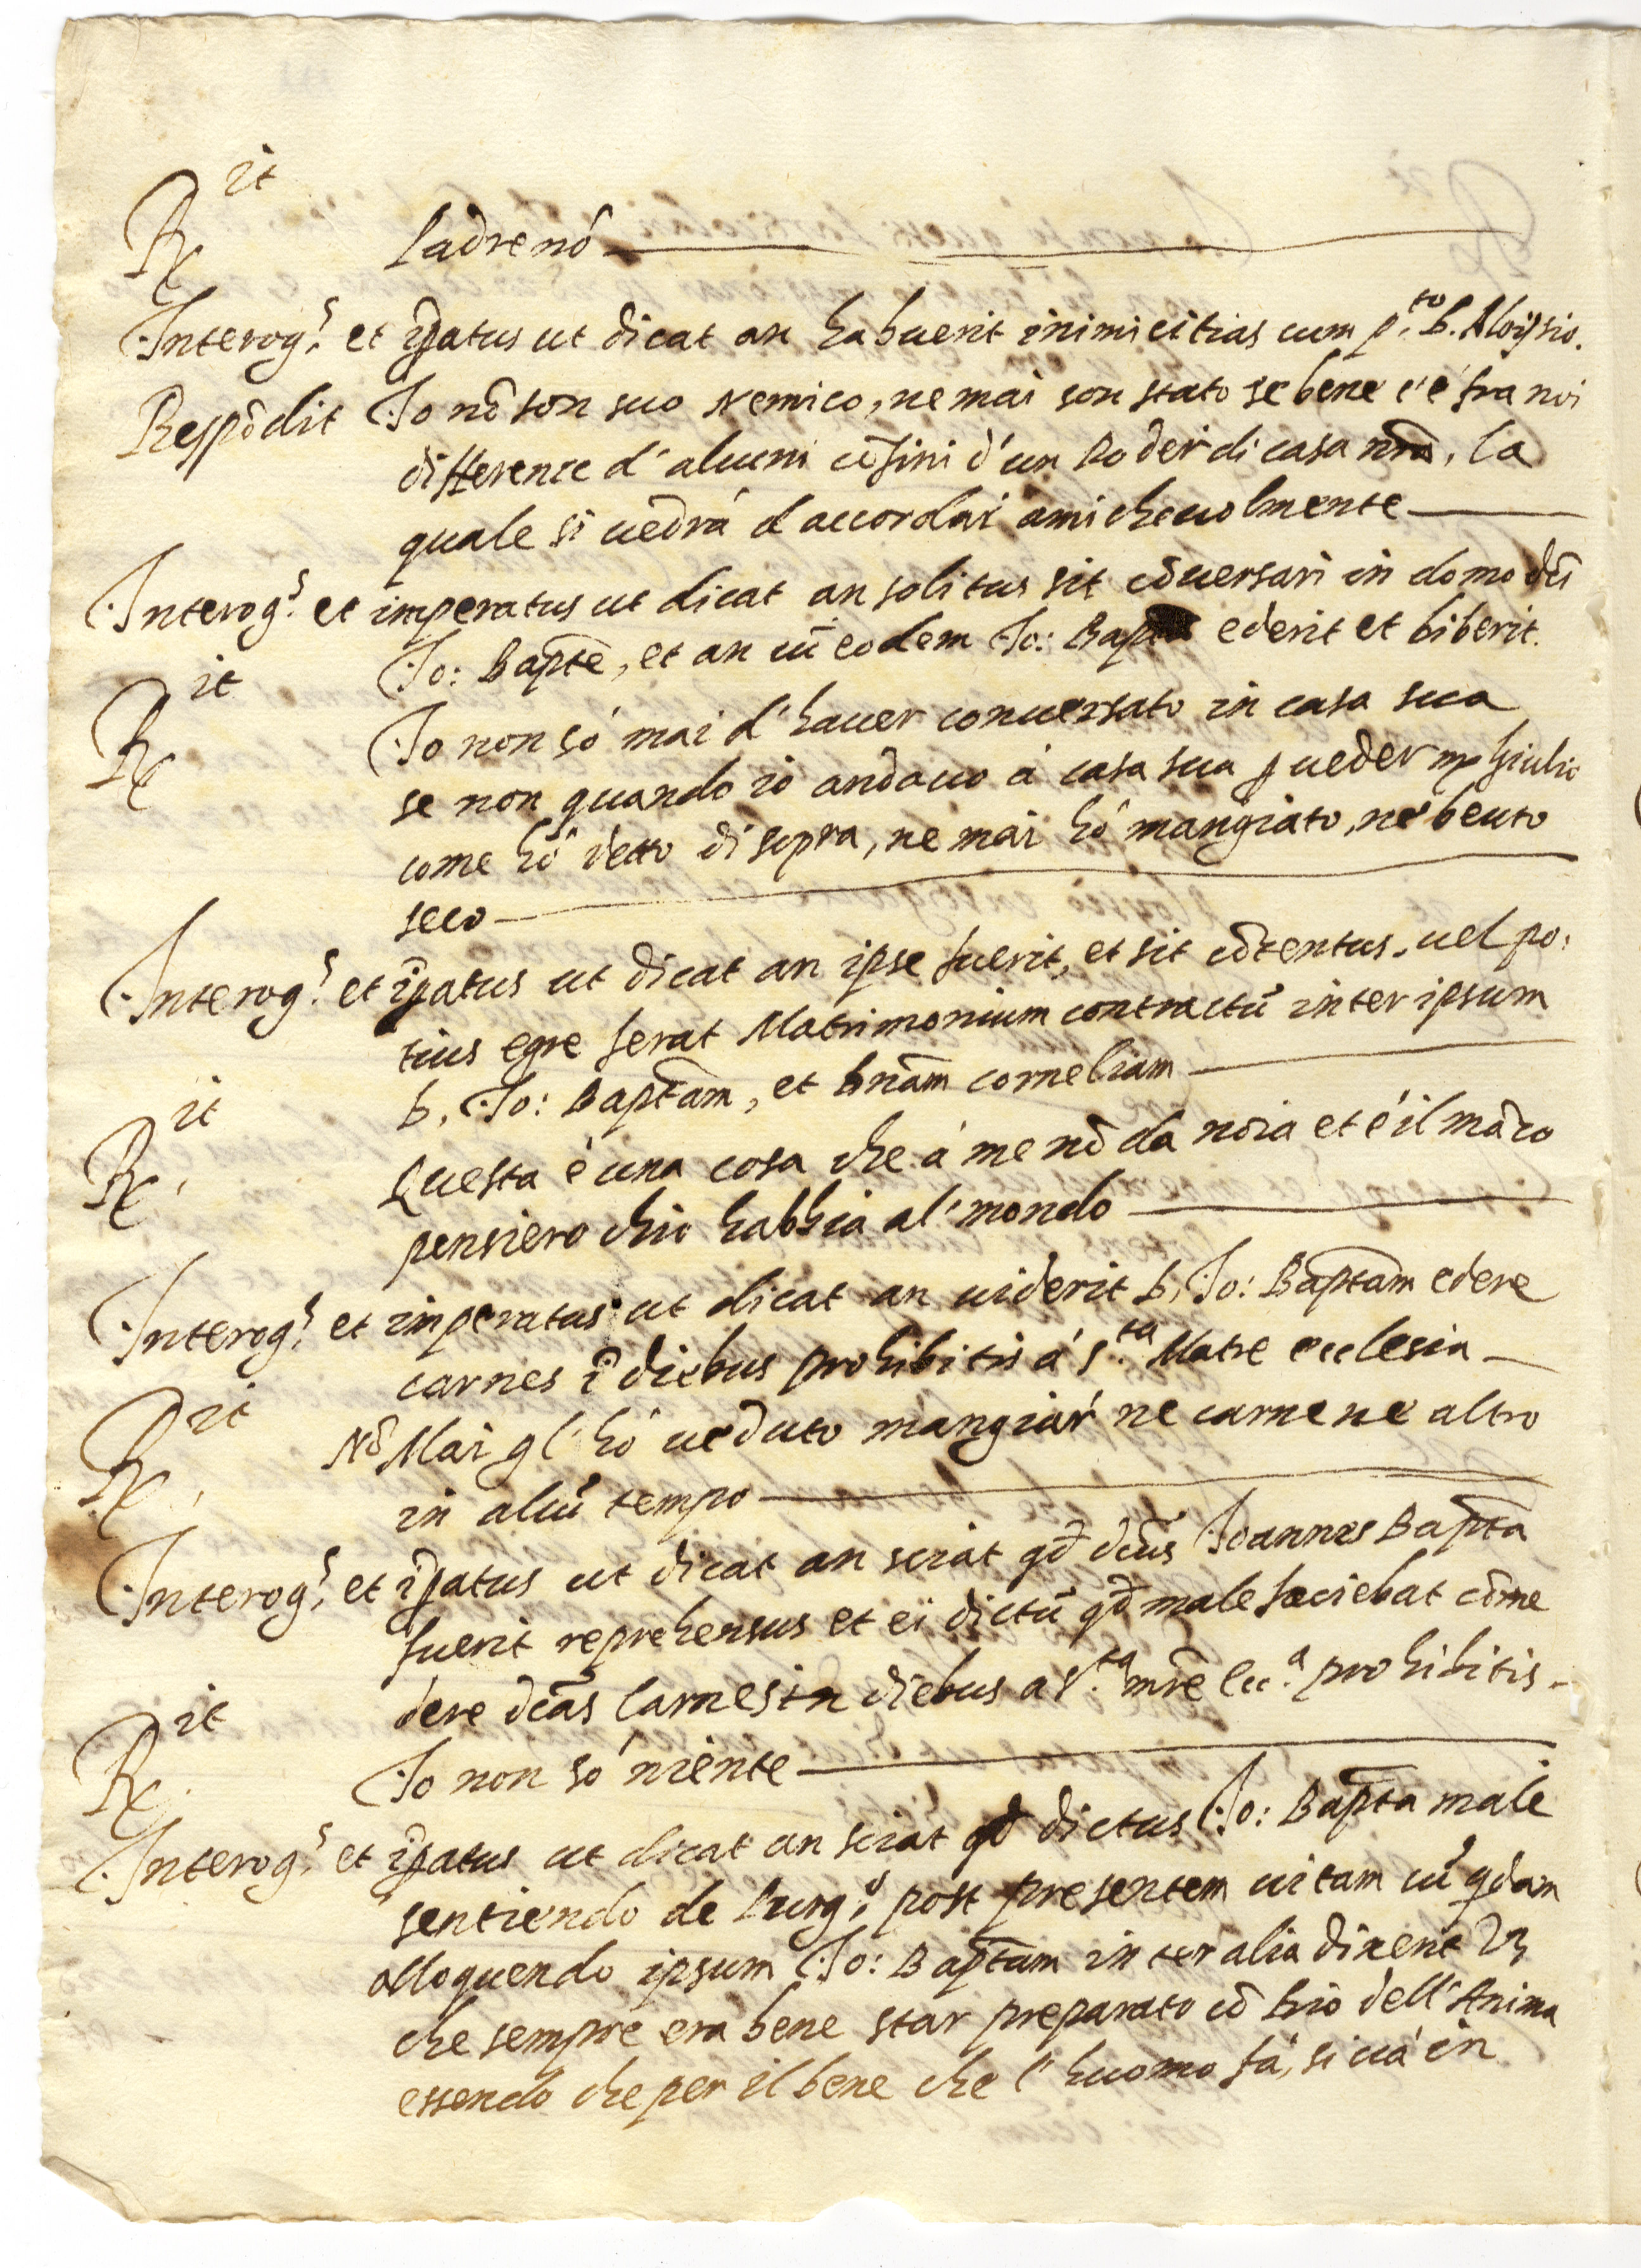 Rx.it Padre nó
Interog.s et ip̄atus ut dicat an habuerit inimicitias cum p.to D. Aloysio.
Respōdit Io nō son suo Nemico, ne mai son stato se bene c'é fra noi
differenze d'alcuni cōfini d'un Poder di casa nr̄a, la
quale si uedrá d'accordar amicheuolmente
Interog.s et imperatus ut dicat an solitus sit cōuersari in domo dc̄i
Io: Bapte̅, et an cū eodem Io: Bap ederit et biberit.
Rx.it Io non só mai d'hauer conuersato in casa sua
se non quando io andauo á casa sua ꝑ ueder m. Giulio
come hó detto di sopra, ne mai hó mangiato, né beuto
seco
Interog.s et ip̄atus ut dicat an ipse fuerit, et sit cōtentus, uel po:
tius egre ferat Matrimonium contractū inter ipsum
D. Io: Bapt̄am, et Dn̄am Corneliam
Rx.it Questa é una cosa che á me nō da noia et é il māco
pensiero ch'io habbia al'mondo
Interog.s et imperatus ut dicat an uiderit D. Io: Bapt̄am edere
carnes ī diebus prohibitis á S.ta Matre ecclesia
Rx.it Nō Mai gl'hó ueduto mangiar ne carne ne altro
in alcū tempo
Interog.s et ip̄atus ut dicat an sciat qd̄ dc̄us Ioannes Bapt̄a
fuerit reprehensus et ei dictū qd̄ male faciebat cōme
dere dc̄as Carnes in diebus a S.ta mr̄e Ecc.a prohibitis.
Rx.it Io non só niente
Interog.s et ip̄atus ut dicat an sciat qd̄ dictus Io: Bapt̄a male
sentiendo de Purg.o post presentem uitam cū qd̄am
alloquendo ipsum Io: Bapt̄am inter alia dixerit Vz
che sempre era bene star preparato cō Dio dell'Anima
essendo che per il bene che l'huomo fá, si uá in